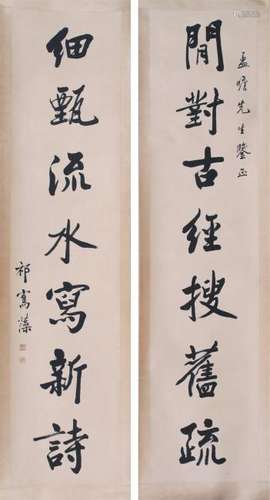 閒對古經搜舊疏
孟瞻先生鑒正
細甄流水寫新詩
祁寯藻